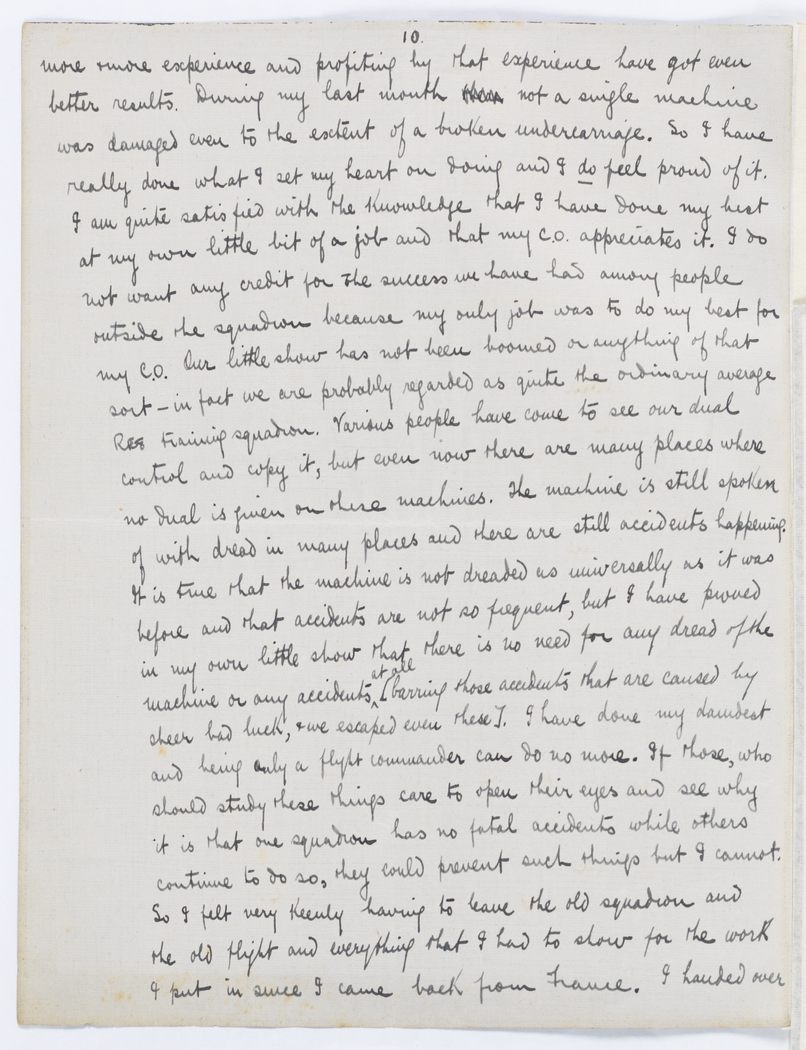 10.
more & more experience and profiting by that experience have got even
better results. During my last month not a single machine
was damaged even to the extent of a broken undercarriage. So I have
really done what I set my heart on doing and I do feel proud of it.
I am quite satisfied with the knowledge that I have done my best
at my own little bit of a job and that my C.O. appreciates it. I do
not want any credit for the success we have had among people
outside the squadron because my only job was to do my best for
my C.O. Our little show has not been boomed or anything of that
sort – in fact we are probably regarded as quite the ordinary average
Res training squadron. Various people have come to see our dual
control and copy it, but even now there are many places where
no dual is given on these machines. The machine is still spoken
of with dread in many places and there are still accidents happening.
It is true that the machine is not dreaded as universally as it was
before and that accidents are not so frequent, but I have proved
in my own little show that there is no need for any dread of the
machine or any accidents at all [barring those accidents that are caused by
sheer bad luck, & we escaped even these]. I have done my damdest
and being only a flight commander can do no more. If those, who
should study these things care to open their eyes and see why
it is that one squadron has no fatal accidents while others
continue to do so, they could prevent such things but I cannot.
So I felt very keenly having to leave the old squadron and
the old flight and everything that I had to show for the work
I put in since I came back from France. I handed over